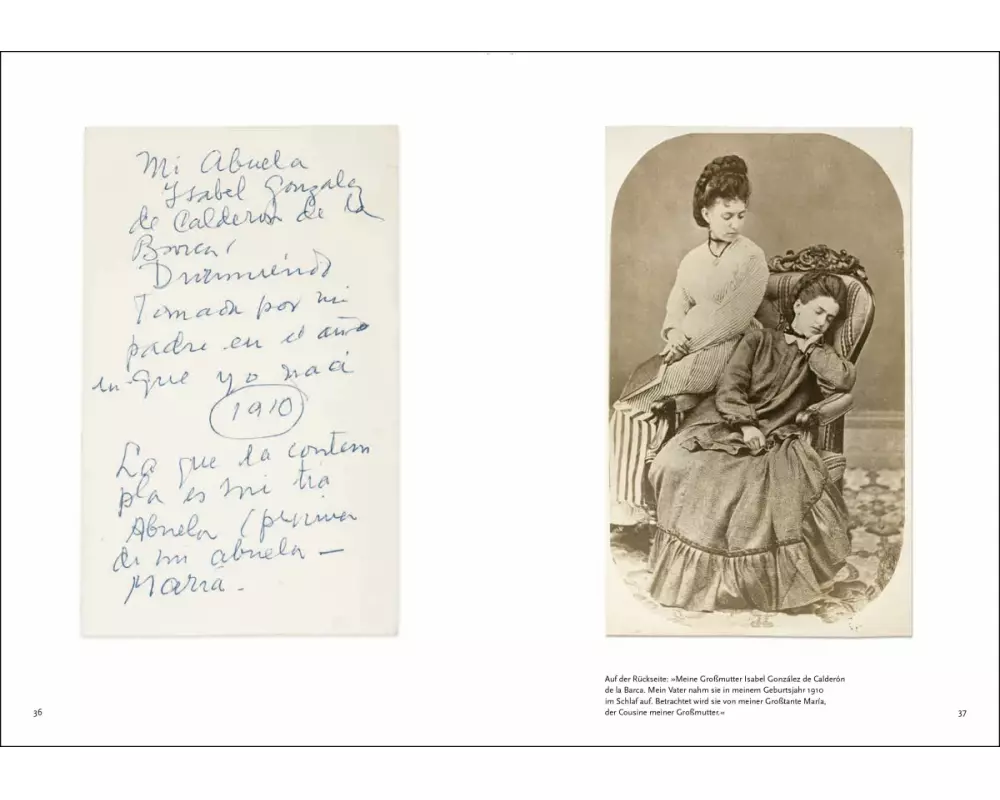 Mi Abuela
Isabel Gonzalez
de Calderon de la
Barca,
Durmiendo
Tomada por mi
padre en el año
en que yo naci
1910
La que la contem
pla es mi tia
Abuela (prima
de mi abuela —
Maria -
36
Auf der Rückseite: »Meine Großmutter Isabel González de Calderón
de la Barca. Mein Vater nahm sie in meinem Geburtsjahr 1910
im Schlaf auf. Betrachtet wird sie von meiner Großtante María,
der Cousine meiner Großmutter.«
37